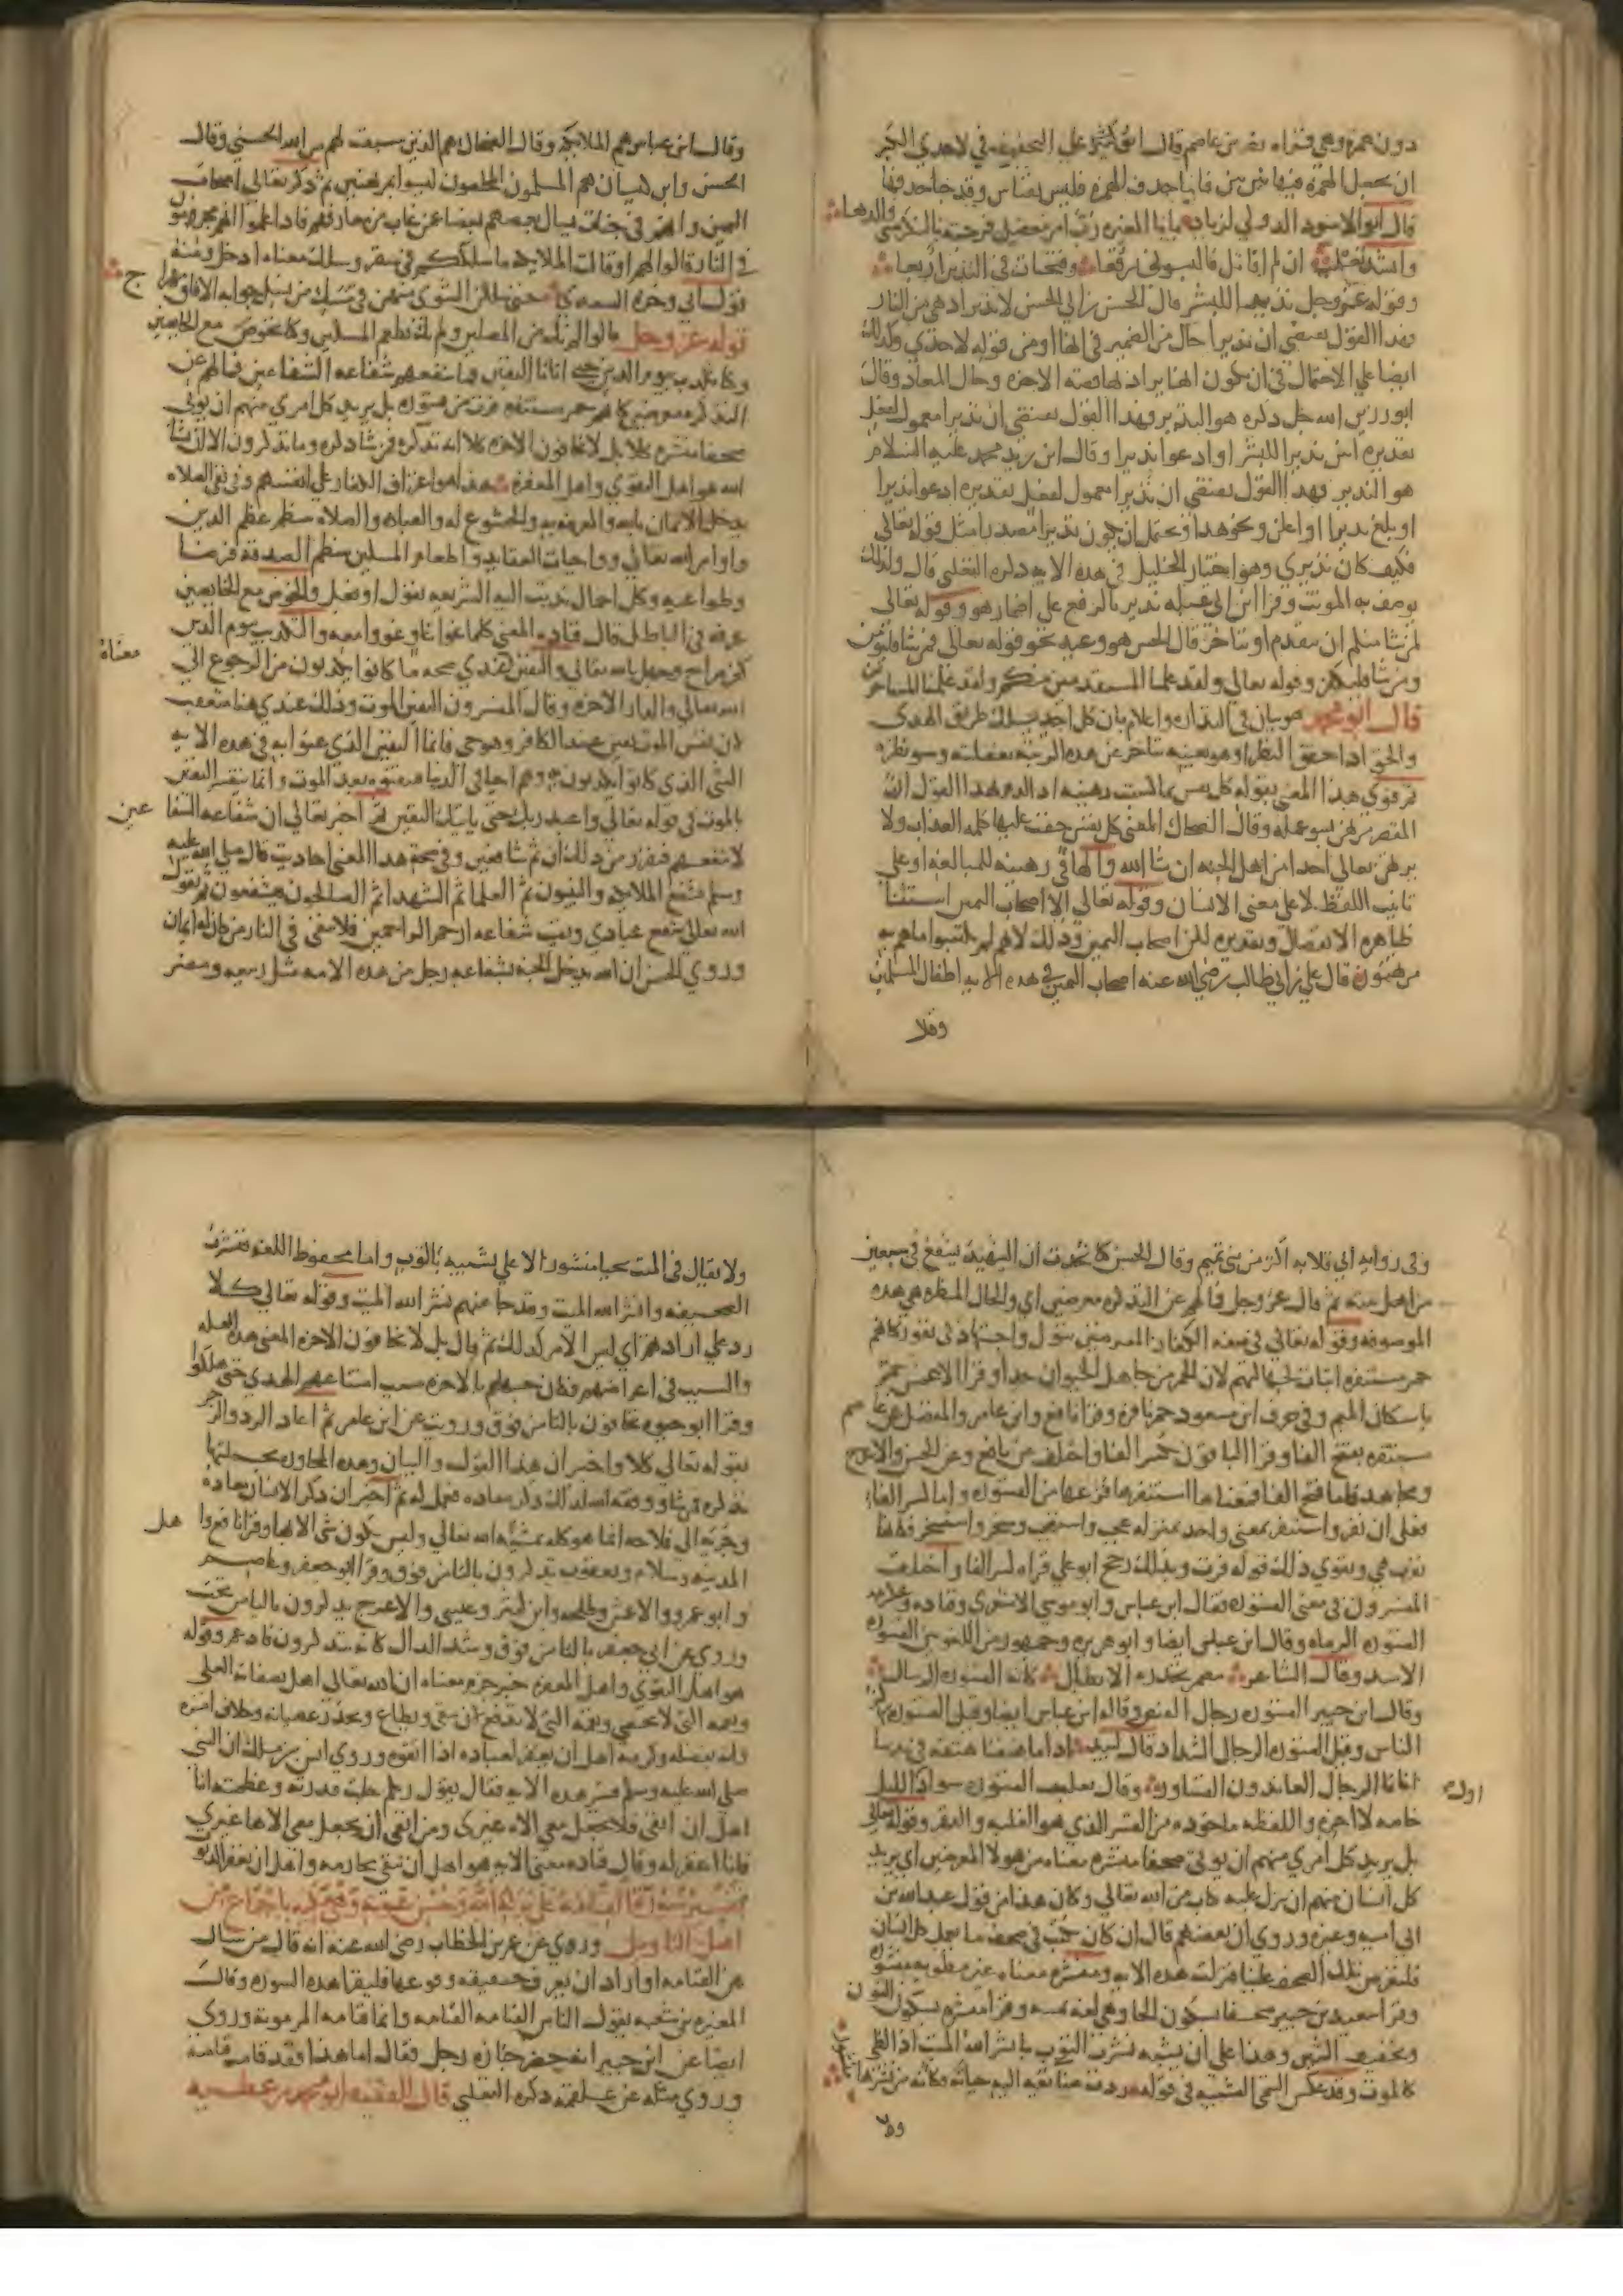 دون همز وهي قراءه نصر بن عاصم قال ابن كثير على التخفيف في لاحدي الكبر
ان يجعل الهمزة فيها بين بين فاما حذف الهمزة فليس بقياس وقد جا حذفها
قال ابو الاسود الدولي لزياد يابا المغيره رب امر معضل فرجته بالنكر مني والدها
وانشد ثعلب ان لم اقاتل فالبسوني برقعا وفتخات في اليدين اربعا
وقوله عز وجل نذيرا للبشر قال الحسن بن ابي الحسن لا نذير ادهى من النار
فهذا القول يقتضي ان نذيرا حال من الضمير في انها او من قوله لاحدي وكذلك
ايضا على الاحتمال في ان يكون انها يراد بها قصه الاخره وحال المعاد وقال
ابو رزين الله جل ذكره هو النذير وبهذا القول يقتضي ان نذيرا معمول لفعل
تقديره ليس نذيرا للبشر او ادعوا نذيرا وقال ابن زيد محمد عليه السلام
هو النذير فهذا القول يقتضي ان نذيرا معمول لفعل تقديره ادعوا نذيرا
او بلغ نذيرا او اعلن ونحو هذا ويحتمل ان يكون نذيرا مصدرا مثل قوله تعالى
فكيف كان نذيري وهو اختيار الخليل في هذه الايه ذكره الثعلبي قال ولذلك
يوصف به المونث وقرا ابن ابي عبله نذير بالرفع على اضمار هو وقوله تعالى
لمن شا منكم ان يتقدم او يتاخر قال الحسن هو وعيد نحو قوله تعالى فمن شا فليومن
ومن شا فليكفر وقوله تعالى ولقد علمنا المستقدمين منكم ولقد علمنا المستاخرين
قال ابو محمد هو بيان في النذاره واعلام بان كل احد يسلك طريق الهدى
والحق اذا حقق النظر او هو بعينه يتاخر عن هذه الرتبه بغفلته وسو نظره
ثم قوي هذا المعنى بقوله كل نفس بما كسبت رهينه اذ الزم بهذا القول ان
المقصر مرتهن بسو عمله وقال الضحاك المعنى كل نفس حقت عليها كلمه العذاب ولا
يرتهن تعالى احدا من اهل الجنه ان شا الله والها في رهينه للمبالغه او على
تانيث اللفظ لا على معنى الانسان وقوله تعالى الا اصحاب اليمين استثنا
ظاهره الانفصال وتقديره لكن اصحاب اليمين وذلك لانهم لم يكتسبوا ما هم به
مرتهنون قال علي بن ابي طالب رضي الله عنه اصحاب اليمين في هذه الايه اطفال المسلمين
وقال ابن عباس هم الملايكه وقال الضحاك هم الذين سبقت لهم من الله الحسنى وقال
الحسن وابن كيسان هم المسلمون المخلصون ليسوا بمرتهنين ثم ذكر تعالى اصحاب
اليمين وانهم في جنات يسال بعضهم بعضا عن غاب من معارفهم فاذا علموا انهم مجرمون
في النار قالوا لهم او قالت الملايكه ما سلككم في سقر وسلك معناه ادخل ومنه
قوله عز وجل قالوا لم نك من المصلين ولم نك نطعم المسكين وكنا نخوض مع الخايضين
وكنا نكذب بيوم الدين حتى اتانا اليقين فما تنفعهم شفاعه الشافعين فما لهم عن
التذكره معرضين كانهم حمر مستنفره فرت من قسوره بل يريد كل امري منهم ان يوتى
صحفا منشره كلا بل لا يخافون الاخره كلا انه تذكره فمن شا ذكره وما تذكرون الا ان يشا
الله هو اهل التقوى واهل المغفره هذا هو اعتراف الكفار على انفسهم وفي نفي الصلاه
يدخل الايمان بالله والمعرفه به والخشوع له والعباده والصلاه تنتظم عظم الدين
واوامر الله تعالى وواجبات العقايد واطعام المساكين ينتظم الصدقه فرضا
وطواعيه وكل اجمال ندبت اليه الشريعه بقول او فعل والخوض مع الخايضين
عرفه في الباطل قال قتاده المعنى كلما غوا غاو غووا معه والتكذيب بيوم الدين معناه
كفر صراح وجهل بالله تعالى واليقين عندي صحه ما كانوا يكذبون من الرجوع الى
الله تعالى والدار الاخره وقال المفسرون اليقين الموت وذلك عندي هنا متعقب
لان نفس الموت يقين عند الكافر وهو حي فانما اليقين الذي عنوا به في هذه الايه
الشي الذي كانوا يكذبون به وهم احيا في الدنيا فتيقنوه بعد الموت وانما يتفسر اليقين
بالموت في قوله تعالى واعبد ربك حتى ياتيك اليقين ثم اخبر تعالى ان شفاعه الشافعين
لا تنفعهم فتقرر من ذلك ان ثم شافعين وفي صحه هذا المعنى احاديث قال صلى الله عليه
وسلم تشفع الملايكه والنبيون ثم العلما ثم الشهدا ثم الصالحون فيشفعون ثم يقول
الله تعالى شفع عبادي وبقيت شفاعه ارحم الراحمين فلا يبقى في النار من كان له ايمان
وروي الحسن ان الله يدخل الجنه بشفاعه رجل من هذه الامه مثل ربيعه ومضر
وفي روايه ابي قلابه اكثر من بني تميم وقال الحسن كنا نتحدث ان الشهيد يشفع في سبعين
من اهل بيته ثم قال عز وجل فما لهم عن التذكره معرضين اي والحال المنتظره هي هذه
الموصوفه وقوله تعالى في صفه الكفار المعرضين بتول واجتهاد في نفور كانهم
حمر مستنفره اثبات لجهالتهم لان الحمر من جاهل الحيوان جدا وقرا الاعمش حمر
باسكان الميم وفي حرف ابن مسعود حمر نافره وقرا نافع وابن عامر والمفضل عن عاصم
مستنفره بفتح الفا وقرا الباقون بكسر الفا واختلف عن نافع وعن الحسن والاعرج
ومجاهد فاما فتح الفا فمعناها استنفرها فزعها من القسوره واما كسر الفا
فعلى ان نفر واستنفر بمعنى واحد بمنزله عجب واستعجب وسخر واستسخر فكانها
نفرت هي ويقوي ذلك قوله فرت وبذلك رجح ابو علي قراه كسر الفا واختلف
المفسرون في معنى القسوره فقال ابن عباس وابو موسى الاشعري وقتاده وعكرمه
القسوره الرماه وقال ابن عباس ايضا وابو هريره وجمهور من اللغويين القسوره
الاسد وقال الشاعر مضمر تحذره الابطال كانه القسوره الريبال
وقال ابن جبير القسوره رجال القنص وقاله ابن عباس ايضا وقيل القسوره ركز
الناس وقيل القسوره الرجال الشداد قال لبيد اذا ما هتفنا هتفه في ندينا
اتانا الرجال العاندون القساور وقال ثعلب القسوره سواد اول الليل
خاصه لا اخره واللفظه ماخوذه من القسر الذي هو الغلبه والقهر وقوله تعالى
بل يريد كل امري منهم ان يوتى صحفا منشره معناه من هولا المعرضين اي يريد
كل انسان منهم ان ينزل عليه كتاب من الله تعالى وكان هذا من قول عبد الله بن
ابي اميه وغيره وروي ان بعضهم قال ان كان يكتب في صحف ما يعمل كل انسان
فلتعرض تلك الصحف علينا فنزلت هذه الايه ومنشره معناه غير مطويه
وقرا سعيد بن جبير صحفا بسكون الحا وهي لغه يمنيه وقرا منشره بسكون النون
وتخفيف الشين وهذا على ان يشبه نشرت الثوب بانشر الله الميت اذ الطي
كالموت وقد عكس التيمي التشبيه في قوله ردت صنايعه اليه حياته فكانه من نشرها منشور
ولا يقال في الميت يحيا منشور الا على تشبيه بالثوب واما محفوظ اللغه فنشرت
الصحيفه وانشر الله الميت وقد جا عنهم نشر الله الميت وقوله تعالى كلا
رد على ارادتهم اي ليس الامر كذلك ثم قال بل لا يخافون الاخره المعنى هذه العله
والسبب في اعراضهم فكان جهلهم بالاخره سبب امتناعهم للهدي حتى هلكوا
وقرا ابو حيوه تخافون بالتا من فوق ورويت عن ابن عامر ثم اعاد الرد والزجر
بقوله تعالى كلا واخبر ان هذا القول والبيان وهذه المحاوره بجملتها
تذكره فمن شا ووفقه الله لذلك ذكر معاده فعمل له ثم اخبر ان ذكر الانسان معاده
وجريه الى فلاحه انما هو كله بمشيه الله تعالى وليس يكون شي الا بها وقرا نافع واهل
المدينه وسلام ويعقوب تذكرون بالتا من فوق وقرا ابو جعفر وعاصم
وابو عمرو والاعمش وطلحه وابن كثير وعيسى والاعرج يذكرون باليا من تحت
وروي عن ابي جعفر بالتا من فوق وشد الدال كانه تتذكرون فادغم وقوله
هو اهل التقوى واهل المغفره خبر جزم معناه ان الله تعالى اهل بصفاته العلى
ونعمه التي لا تحصى ونقمه التي لا تدفع ان يتقى ويطاع ويحذر عصيانه وخلاف امره
وانه بفضله وكرمه اهل ان يغفر لعباده اذا اتقوه وروي انس بن مالك ان النبي
صلى الله عليه وسلم فسر هذه الايه فقال يقول ربكم جلت قدرته وعظمته انا
اهل ان اتقى فلا يجعل معي الاه غيري ومن اتقى ان يجعل معي الاها غيري
فانا اغفر له وقال قتاده معنى الايه هو اهل ان تتقى محارمه واهل ان يغفر الذنوب
تفسير سورة القيامة
اهل التاويل وروي عن عمر بن الخطاب رضي الله عنه انه قال من سال
عن القيامه او اراد ان يعرف حقيقه وقوعها فليقرا هذه السوره وقال
المغيره بن شعبه يقول الناس القيامه القيامه وانما قيامه المر موته وروي
ايضا عن ابن جبير انه حضر جنازه رجل فقال اما هذا فقد قامت قيامته
وروي مثله عن علقمه ذكره الثعلبي قال الفقيه ابو محمد بن عطيه